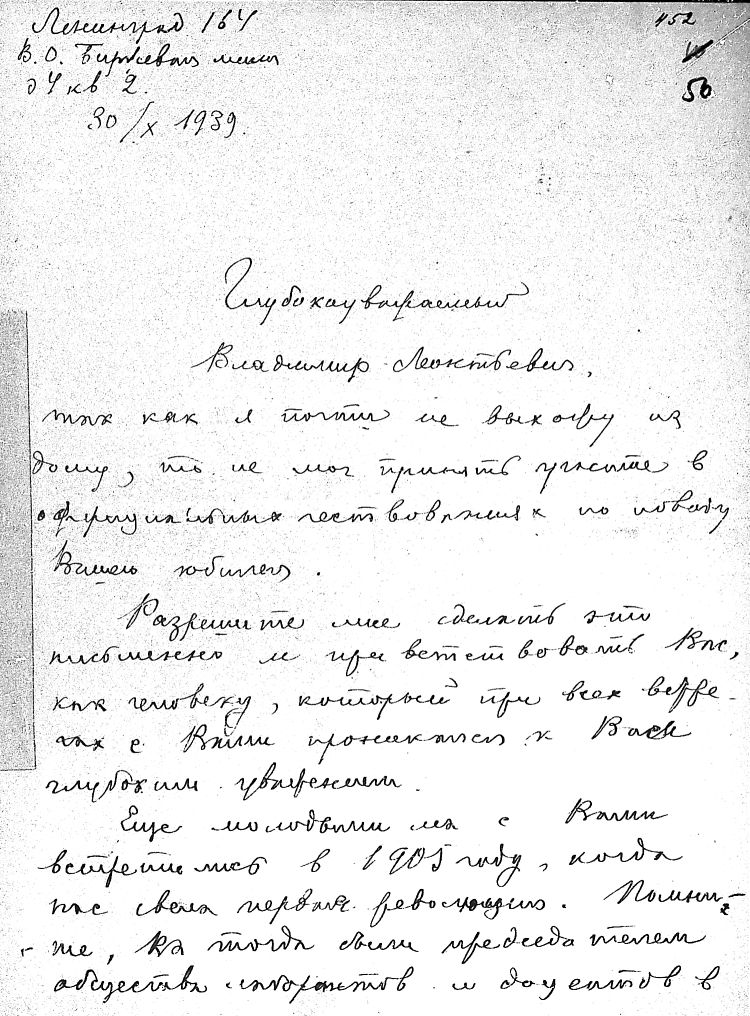 Ленинград 164
452
В.О. Биржевая линия
д 4 кв 2.
50
30/X 1939.
Глубокоуважаемый
Владимир Леонтьевич,
так как я почти не выхожу из
дому, то не мог принять участие в
официальных чествованиях по поводу
Вашего юбилея.
Разрешите мне сделать это
письменно и приветствовать Вас,
как человеку, который при всех встре-
чах с Вами проникался к Вам
глубоким уважением.
Еще молодыми мы с Вами
встретились в 1905 году, когда
нас свела первая революция. Помни-
те, Вы тогда были председателем
общества лаборантов и доцентов в